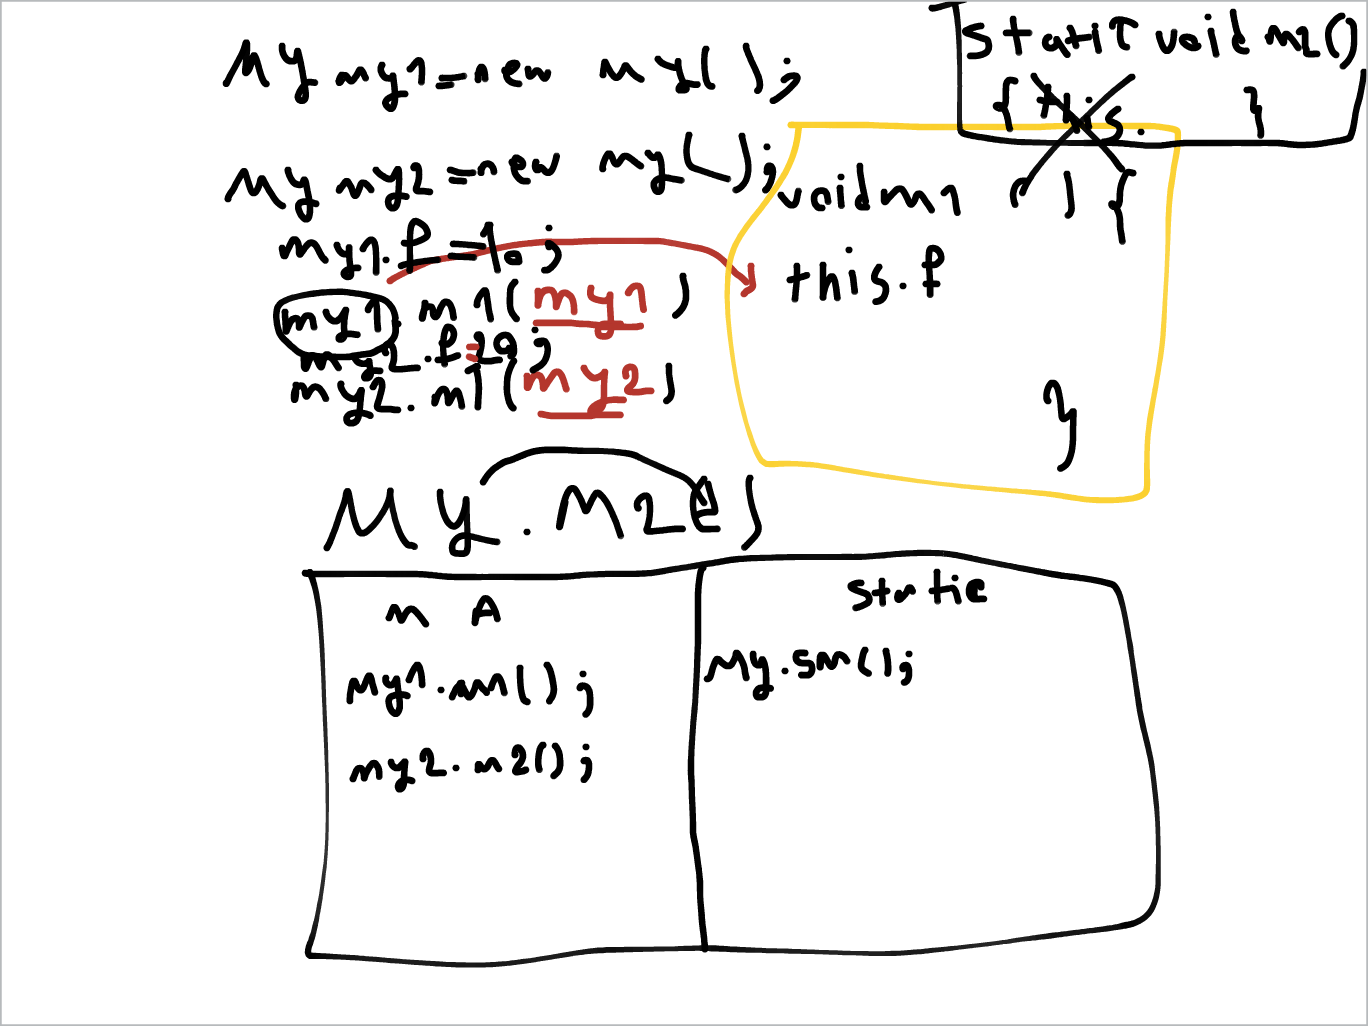 My my1=new my();
My my2=new my();
my1.f=10;
my1.m1(my1)
my2.f=20;
my2.m1(my2)
static void m2()
{ this. }
void m1 ( ) {
this.f
}
My.M2()
static
my1.m1();
my2.m2();
My.sm();